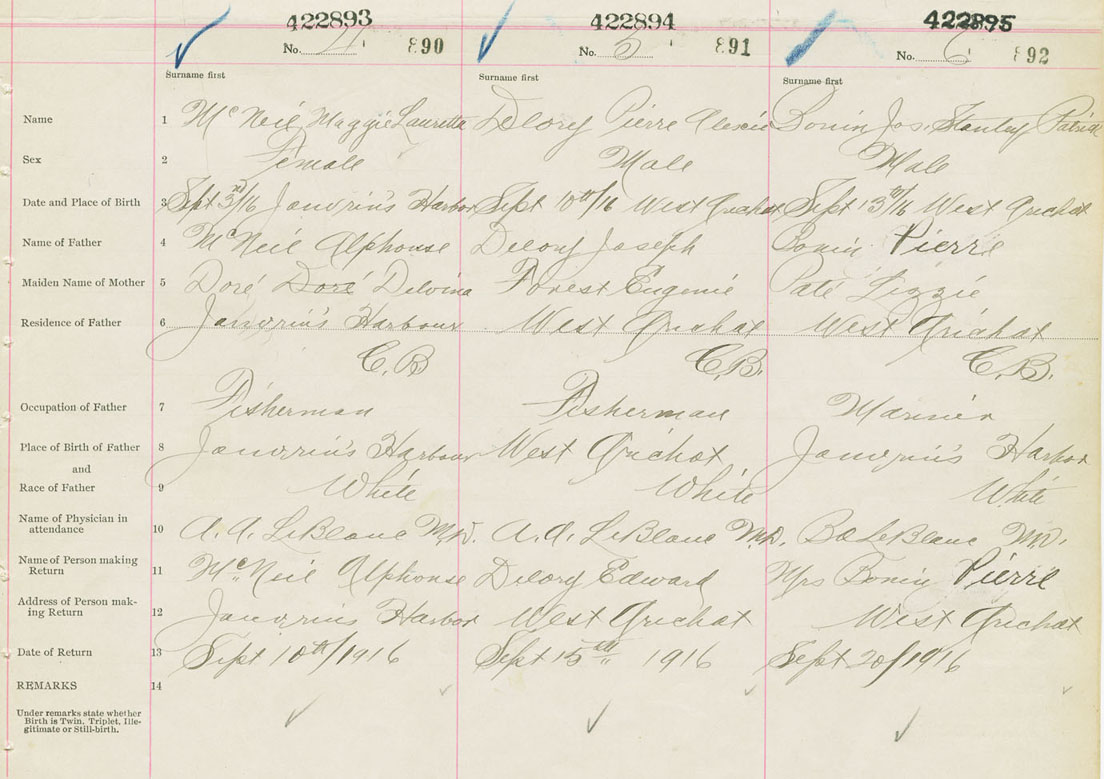 422893 422894 422895
No. 890 No. 5 891 No. 6 892
Surname first Surname first Surname first
Name 1 McNeil Maggie Lauretta Delory Pierre Alexis Bonin Jos. Stanley Patrick
Sex 2 Female Male Male
Date and Place of Birth 3 Sept 3rd/16 Janvrin's Harbor Sept 10th/16 West Arichat Sept 13th/16 West Arichat
Name of Father 4 McNeil Alphonse Delory Joseph Bonin Pierre
Maiden Name of Mother 5 Doré Doré Delvina Forest Eugenie Paté Lizzie
Residence of Father 6 Janvrin's Harbour West Arichat West Arichat
C.B C.B. C.B.
Occupation of Father 7 Fisherman Fisherman Mariner
Place of Birth of Father 8 Janvrin's Harbour West Arichat Janvrin's Harbor
and
Race of Father 9 White White White
Name of Physician in
attendance 10 A. A. LeBlanc M.D. A. A. LeBlanc M.D. LeBlanc M.D.
Name of Person making
Return 11 McNeil Alphonse Delory Edward Mrs Bonin Pierre
Address of Person mak-
ing Return 12 Janvrins Harbor West Arichat West Arichat
Date of Return 13 Sept 10th/1916 Sept 15th 1916 Sept 20/1916
REMARKS 14
Under remarks state whether
Birth is Twin, Triplet, Ille-
gitimate or Still-birth.